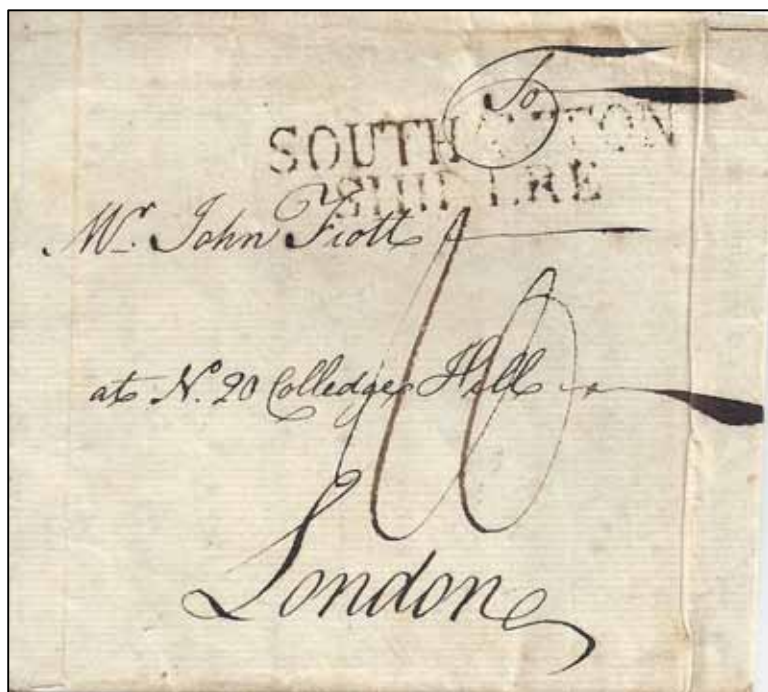 To
SOUTHAMPTON
SHIP LRE
Mr. John Fiott
at No. 20 Colledge Hill
London